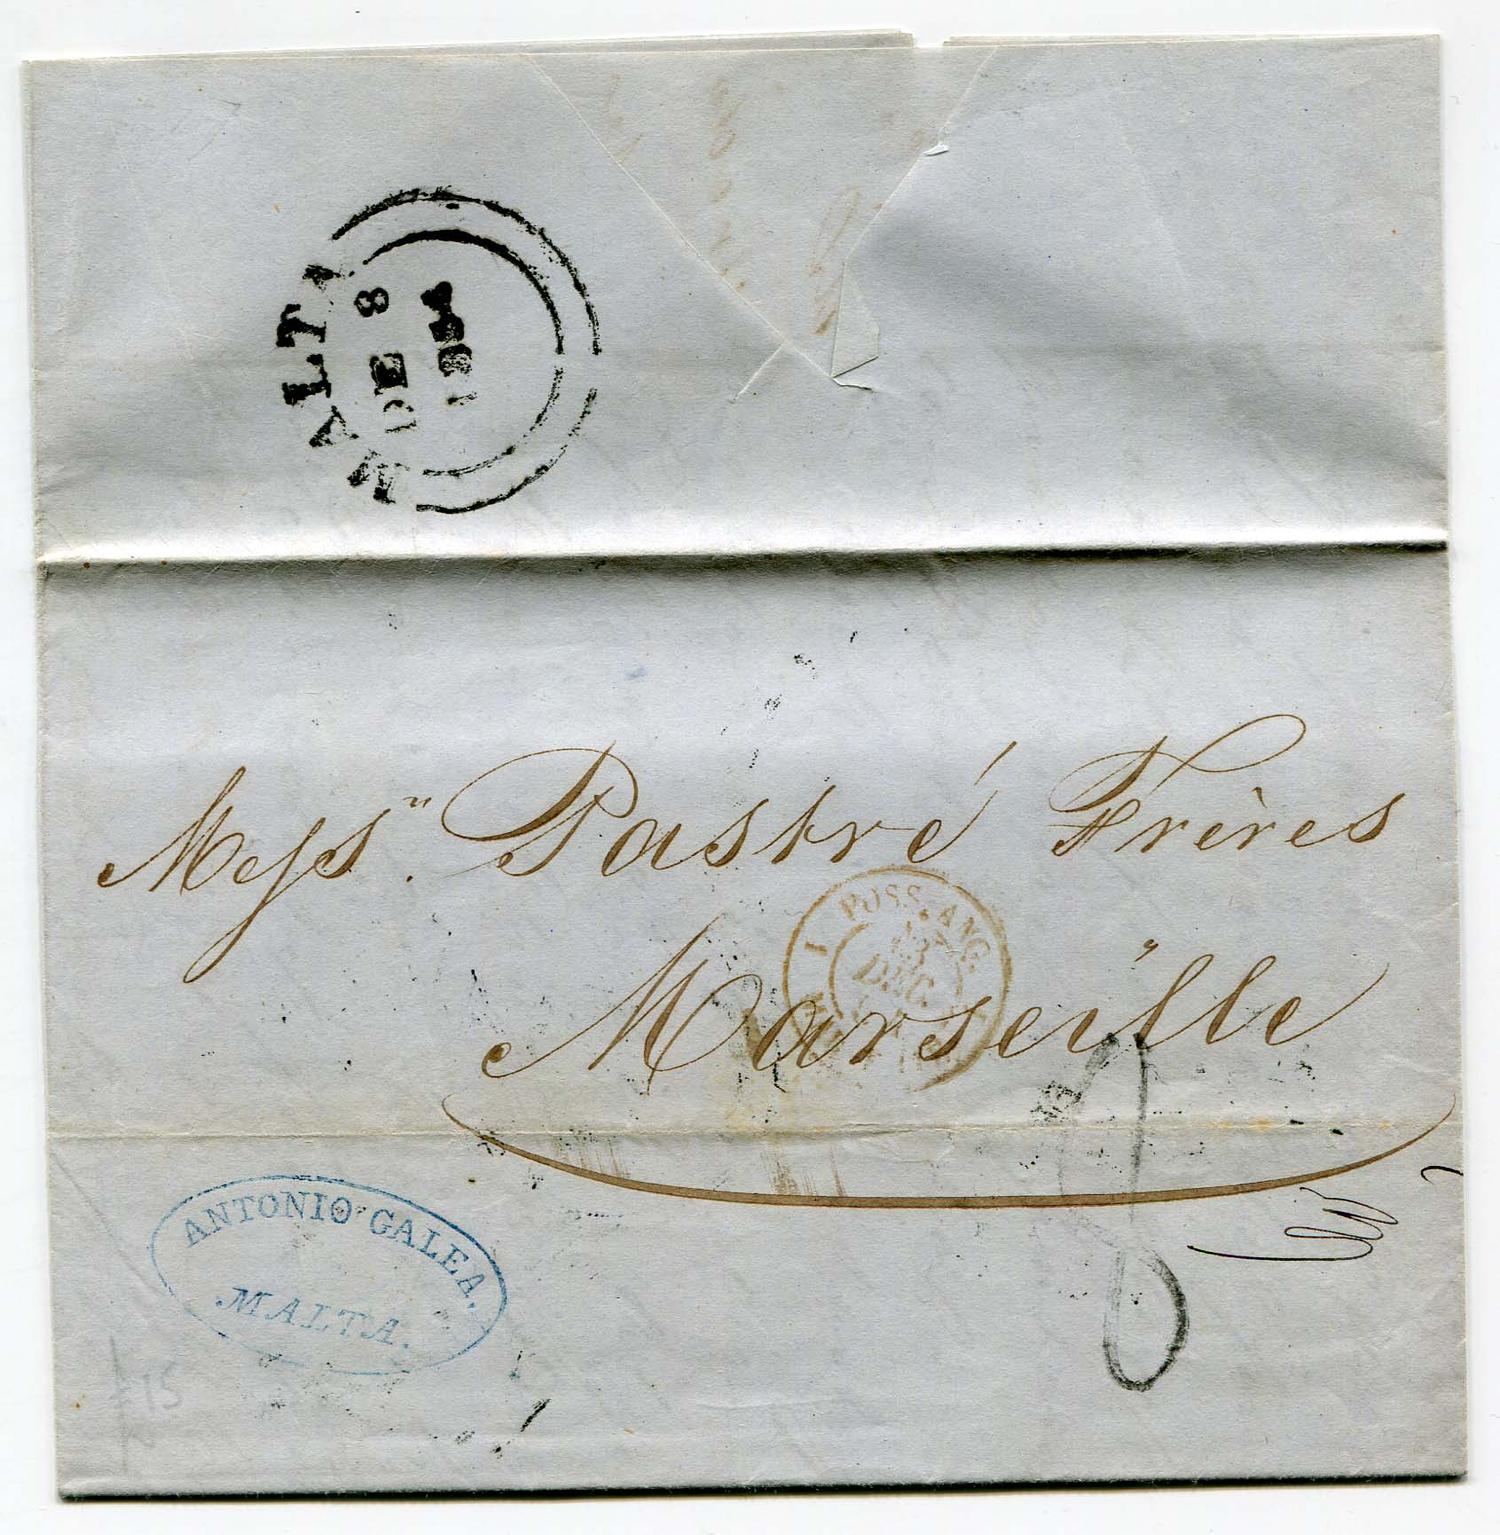 MALTA
DE 8
1854
Mess.rs Pastré Frères
Marseille
1 POSS. ANG.
13
DEC.
8
ANTONIO GALEA.
MALTA.
£15